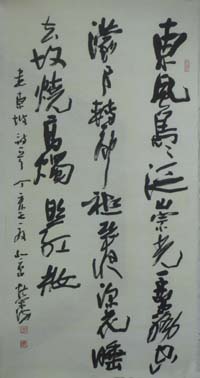 東風裊々泛崇光香霧空
濛月轉廊祗恐夜深花睡
去故燒高燭照紅妝
東坡詩 丁亥